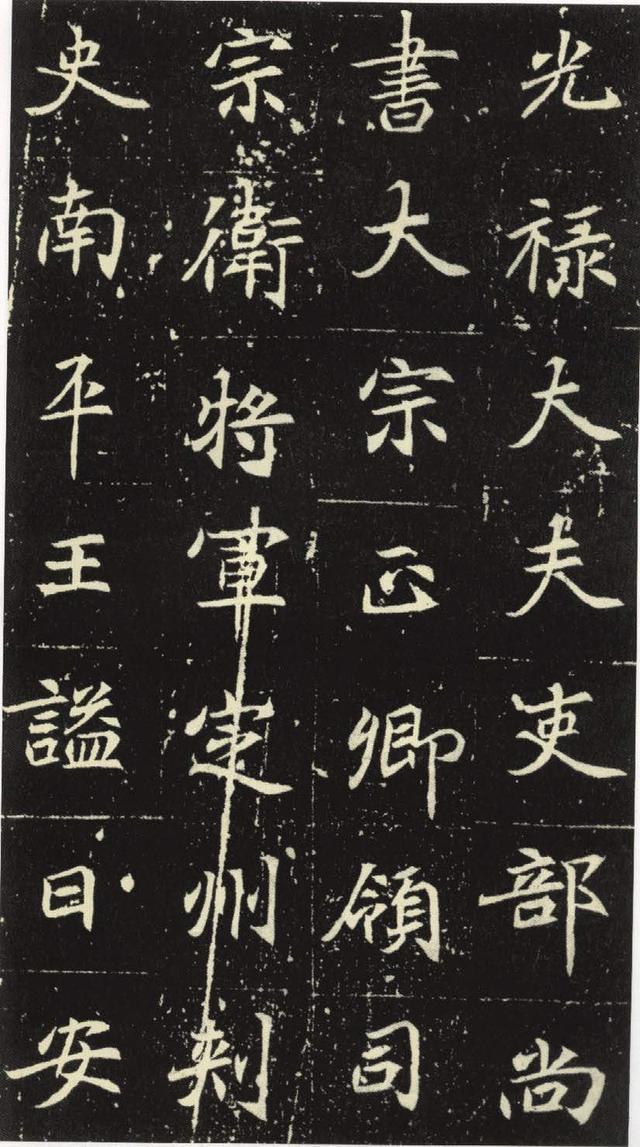 光禄大夫吏部尚
書大宗正卿領司
宗衛將軍定州刾
史南平王謚曰安